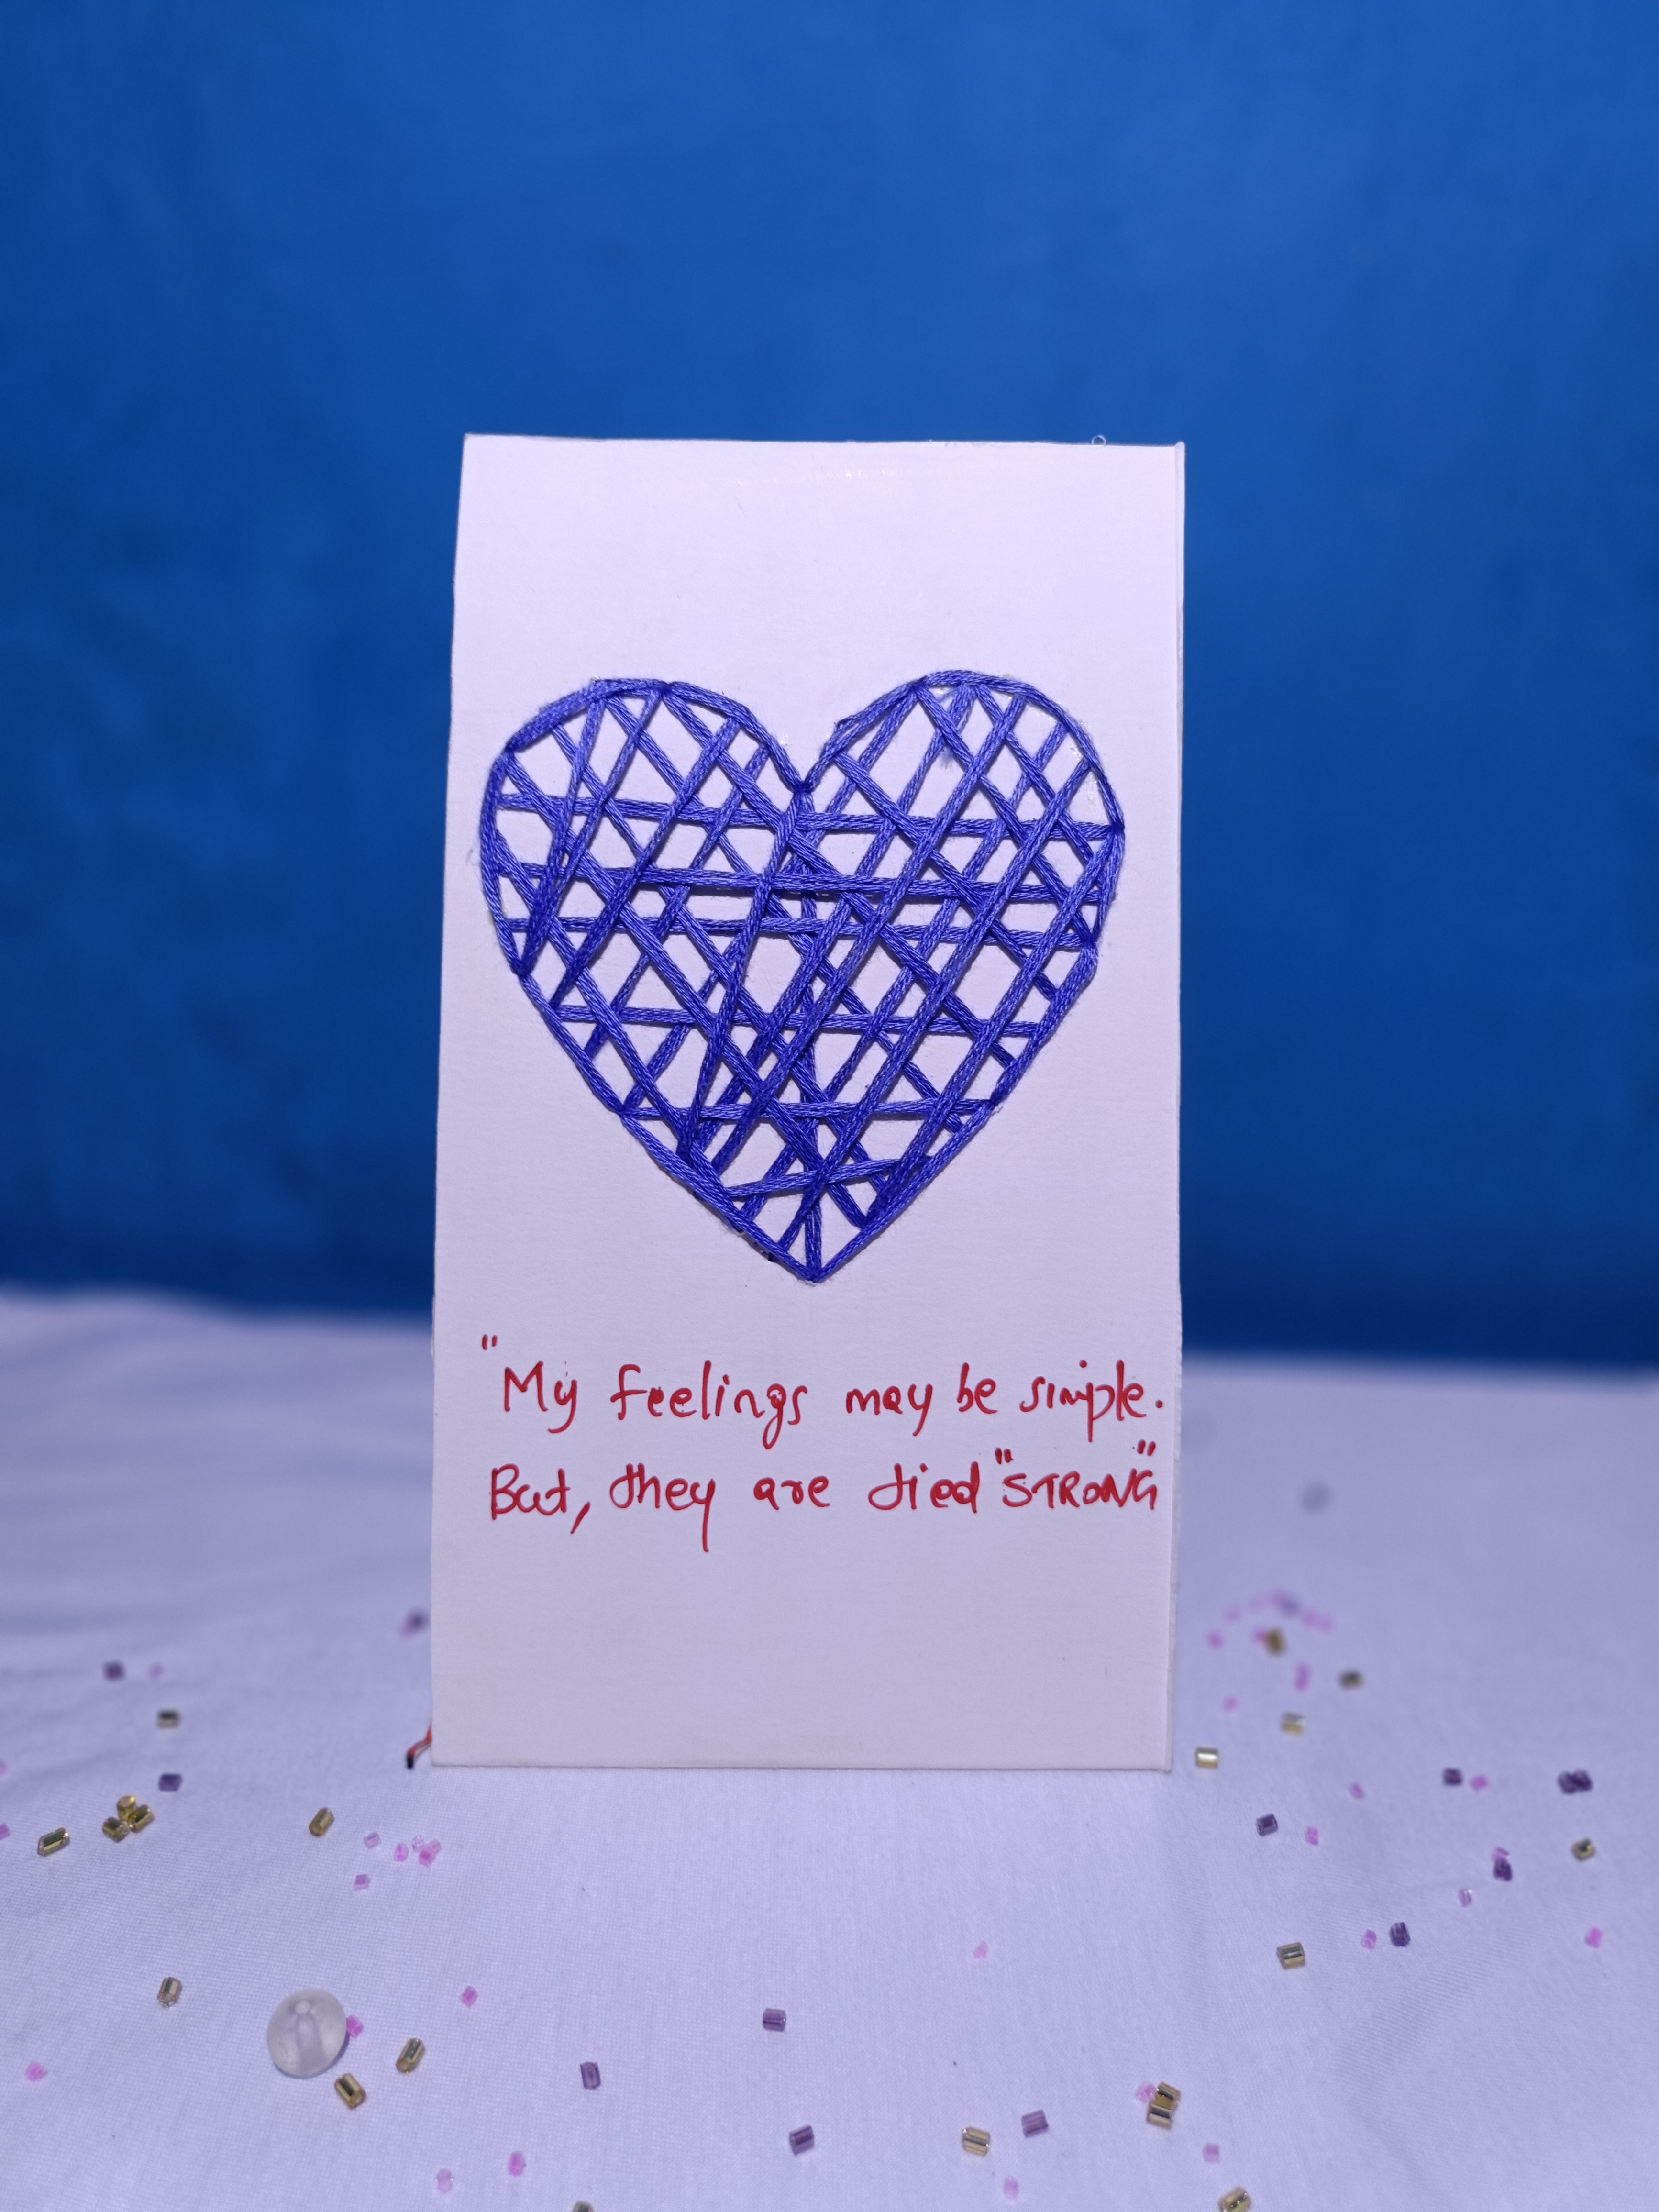 "My feelings may be simple.
But, they are tied "STRONG"